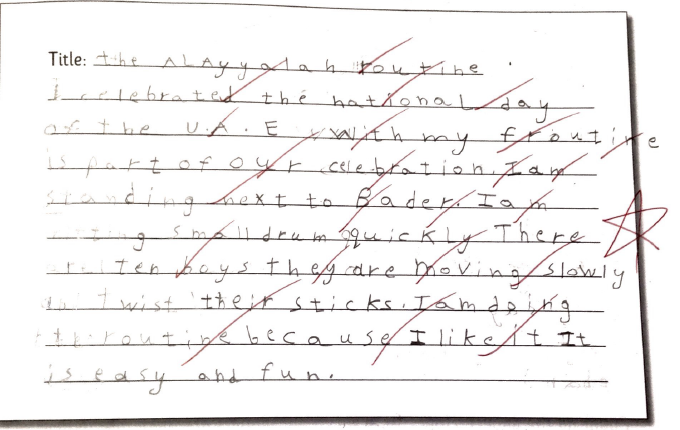 Title: the ALAyyalah routine
I celebrated the national day
of the U.A.E with my froutine
is part of our celebration. I am
standing next to Bader. I am
small drum quickly There
ten boys they are moving slowly
twist their sticks. I am doing
the routine because I like it It
is easy and fun.